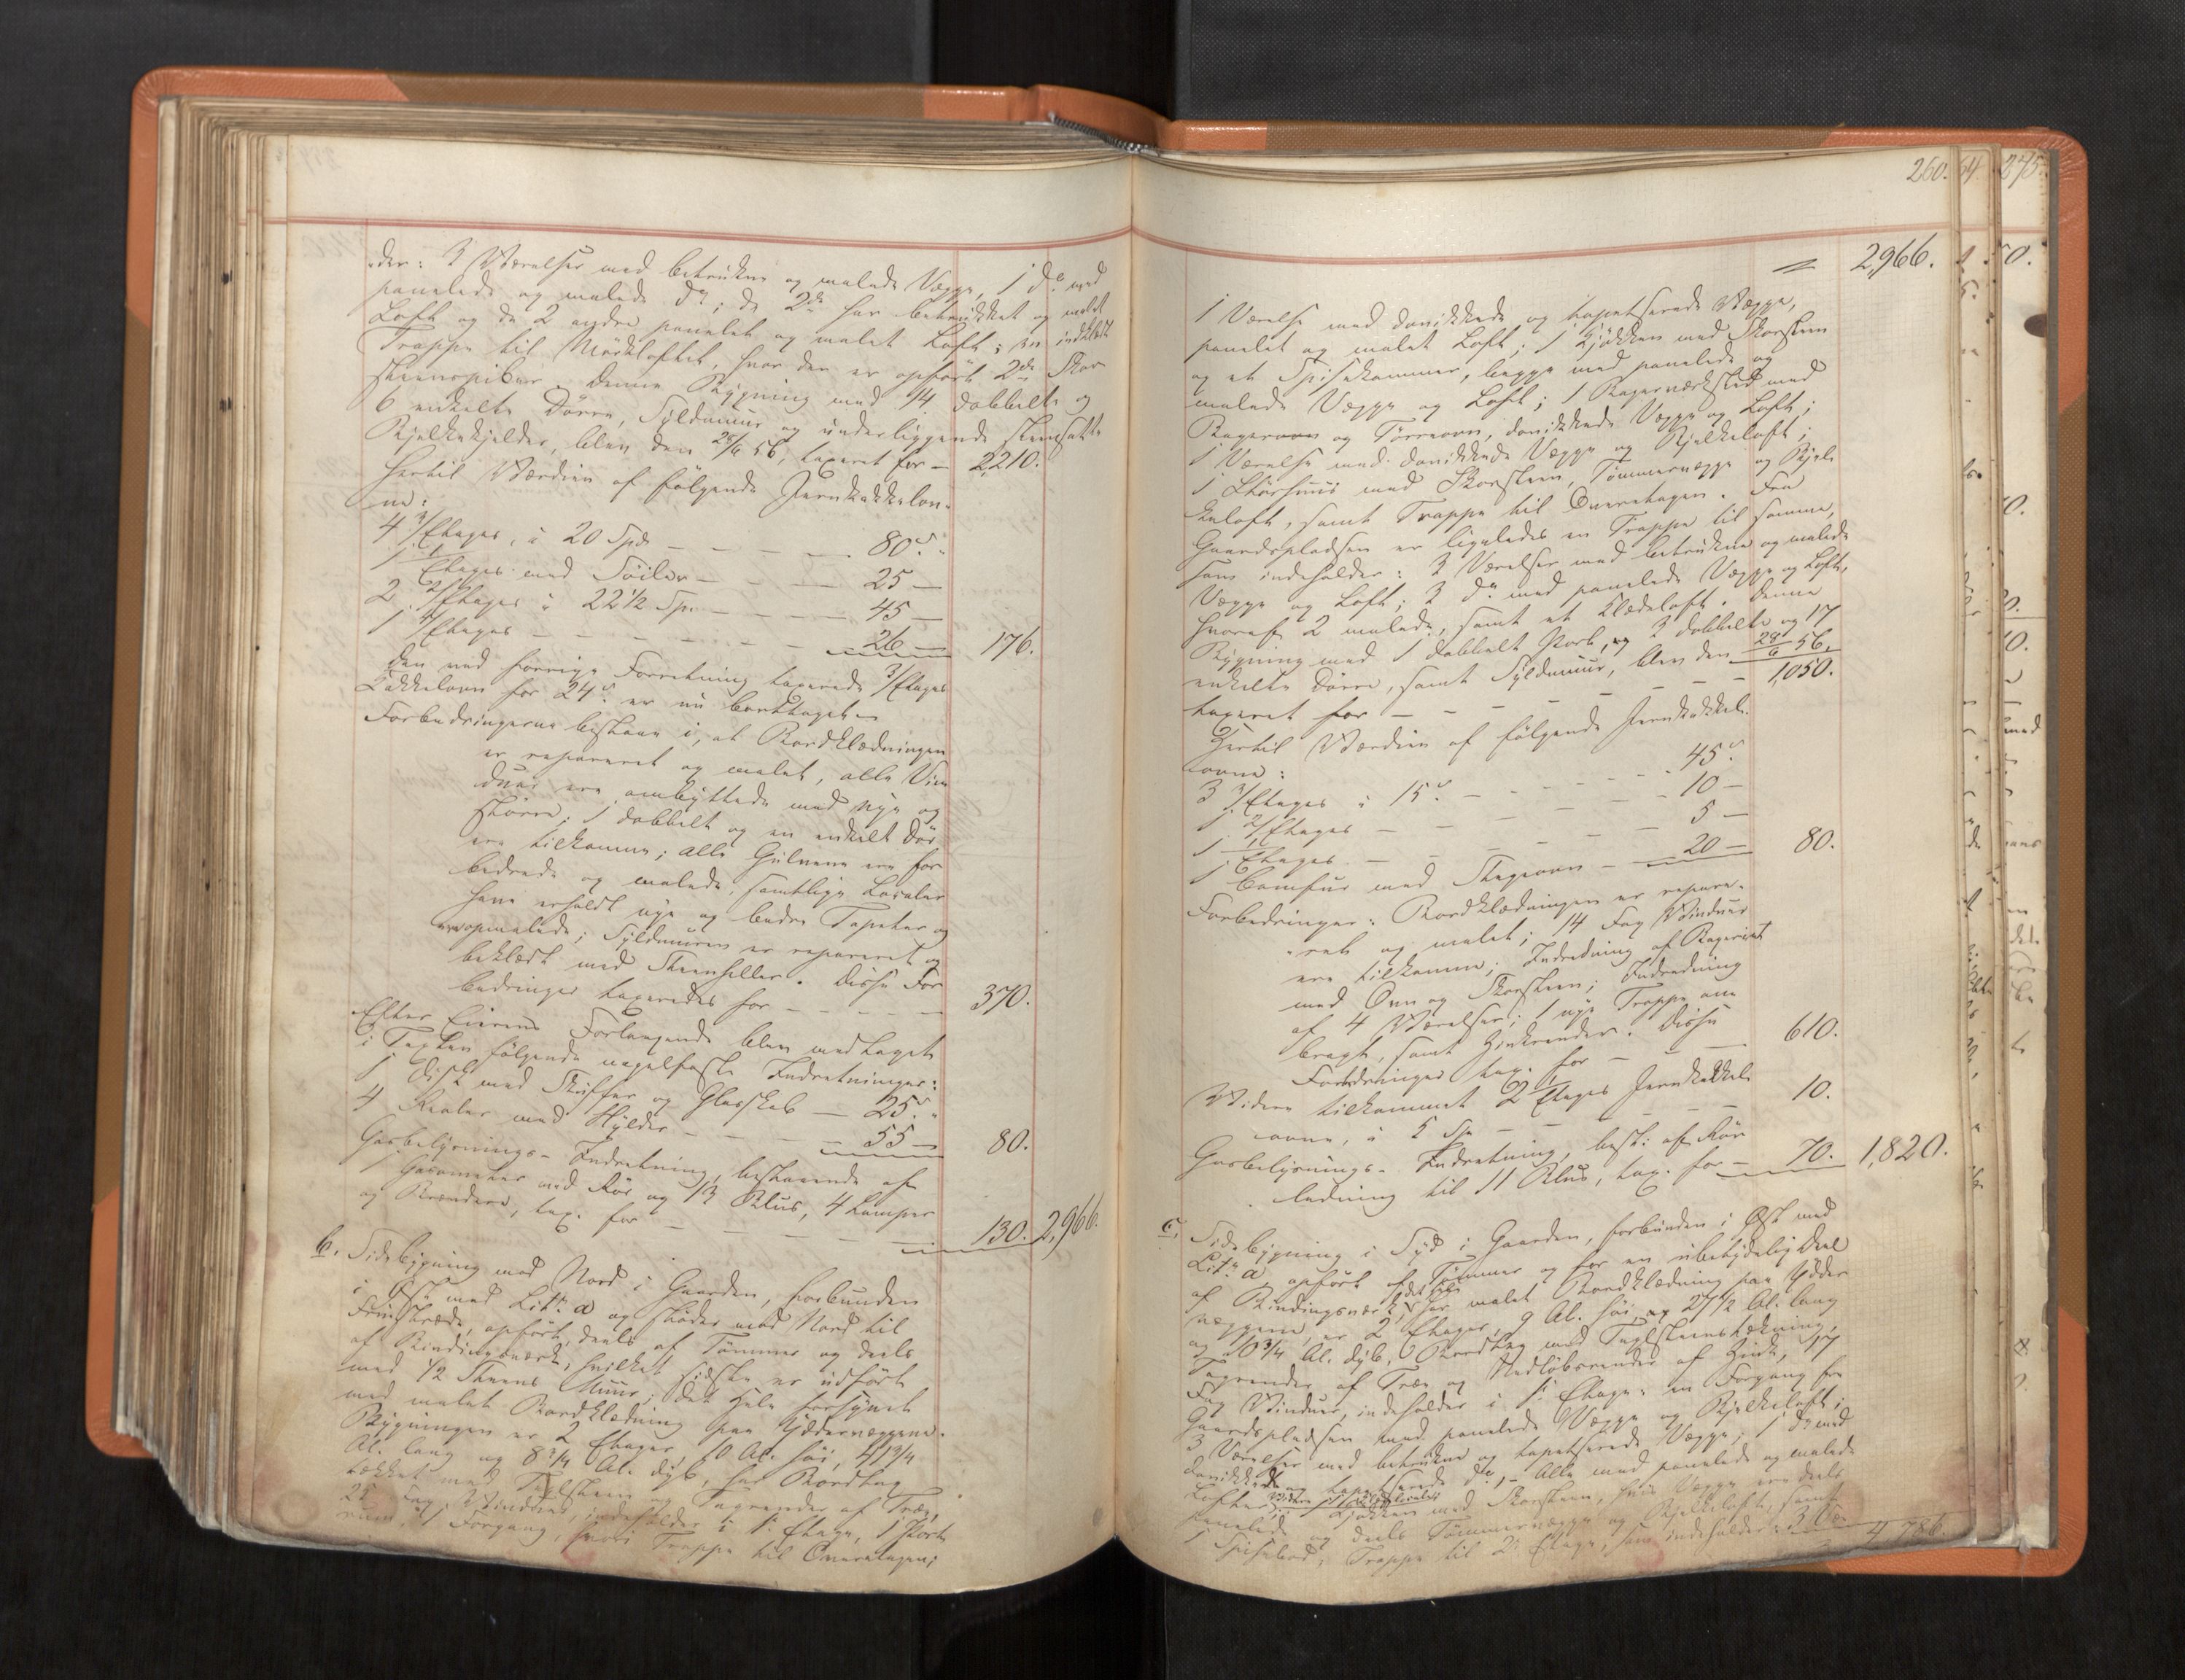 der: 3 Værelser med betrukne og malede Vægge, 1 do med
panelede og malede do; de 2de har betrukket og malet
Loft og de 2 andre panelet og malet Loft; en indklædt
Trappe til Mörkloftet, hvor der er opført 2de Skor
steenspiber. Denne Bygning med 14 dobbelte og
6 enkelte Dörre, Syldmuur og underliggende steensatte
Bjelkekjelder, blev den 28/6 56, taxeret for — 2,210.
Hertil Værdien af følgende Jernkakkelov-
ne:
4 3/Etages, à 20 Spd — — — — 80 "
1 1/Etages med Söiler — — — 25 —
2 2/Etages à 22 1/2 Sp. — — — 45 —
1 4/Etages — — — — — — 26 — 176.
Den ved forrige Forretning taxerede 3/Etages
Kakkelovn for 24 er nu borttaget —
Forbedringerne bestaaer i, at Bordklædningen
er repareret og malet, alle Vin
duer ere ombyttede med nye og
større; 1 dobbelt og en enkelt Dör
ere tilkomne; alle Gulvene ere for
bedrede og malede, samtlige Localer
have erholdt nye og bedre Tapeter og
ere opmalede; Syldmuren er repareret og
beklædt med Steenheller. Disse For
bedringer taxeredes for — — — — 370.
Efter Eierens Forlangende blev medtaget
i Taxten følgende nagelfaste Indretninger:
1 Disk med Skuffer og Glasskab — 25 "
4 Reoler med Hylder — — — — 55 — 80.
Gasbelysnings-Indretning, bestaaende af
1 Gasometer med Rör og 13 Blus, 4 Lamper
og Brændere, tax. for — — — — — 130. 2,966.
b. Sidebygning mod Nord i Gaarden, forbunden
i Öst med Litr. a og støder mod Nord til
opført, deels af Tömmer og deels
af Bindingsværk, hvilket sidste er udført
med 1/2 Steens Muur; det Hele forsynet
med malet Bordklædning paa Yddervæggene.
Bygningen er 2 Etager, 10 Al. høi, 41 3/4
Al. lang og 8 3/4 Al. dyb, har Bordtag
tækket med Taglsteen og Tagrender af Træ,
25 Fag Vinduer, indeholder i 1e Etage, 1 Port
rum, 1 Forgang, hvori Trappe til Overetagen;
260. 64 275.
2,966.
1 Værelse med danikkede og tapetserede Vægge,
panelet og malet Loft; 1 Kjökken med Skorsteen
og et Spisekammer, begge med panelede og
malede Vægge og Loft; 1 Bagerværksted med
Bagerovn og Tørreovn, danikkede Vægge og Loft;
1 Værelse med danikkede Vægge og Bjelkeloft;
1 Ildhuus med Skorsteen, Tömmervægge og Bjel
keloft, samt Trappe til Overetagen. Fra
Gaardspladsen er ligeledes en Trappe til samme,
som indeholder: 3 Værelser med betrukne og malede
Vægge og Loft; 3 do med panelede Vægge og Loft,
hvoraf 2 malede, samt et Klædeloft. Denne
Bygning med 1 dobbelt Port, og 3 dobbelte og 17
enkelte Dörre, samt Syldmuur, blev den 28/6 56.
taxeret for — — — — — — 1,050.
Hertil Værdien af følgende Jernkakkel-
ovne:
3 3/Etages à 15 — — — — 45
1 2/Etages — — — — — 10 —
1 1/Etages — — — — — 5 —
1 Comfur med Stegeovn — 20 — 80.
Forbedringer: Bordklædningen er repare-
ret og malet; 14 Fag Vinduer
ere tilkomne; Indredning af Bageriet
med Ovn og Skorsteen; Indredning
af 4 Værelser; 1 nye Trappe an
bragt, samt Zinkrender. Disse
Forbedringer tax. for — — — 610.
Videre tilkommet 2 Etages Jernkakkel
ovne, à 5 Sp — — — — 10.
Gasbelysnings-Indretning, best. af Rör
ledning til 11 Blus, tax. for — 70. 1,820.
c. Sidebygning i Syd i Gaarden, forbunden i Öst med
Litr. a, opført af Tömmer og for en ubetydelig Deel
af Bindingsværk; det Hele har malet Bordklædning paa Ydder
væggene, er 2 Etager, 9 Al. høi, og 27 1/2 Al. lang
og 10 3/4 Al. dyb, Bordtag med Taglsteenstækning,
Tagrender af Træ og Nedløbsrender af Zink, 17
Fag Vinduer, indeholder i 1e Etage: en Forgang fra
Gaardspladsen med panelede Vægge og Bjelkeloft;
3 Værelser med betrukne og tapetserede Vægge; 1 do med
danikkede og tapetserede do, — Alle med panelede og malede
Lofter; 1 Kjökken med Skorsteen, hvis Vægge ere deels
panelede og deels Tömmervægge og Bjelkeloft, samt
1 Spisebod; Trappe til 2 Etage, som indeholder: 3 Væ-
4,786.